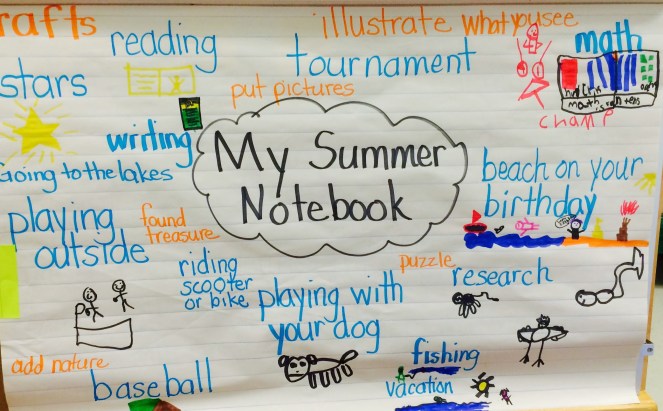 rafts
reading
illustrate what you see
tournament
math
stars
put pictures
CHAMP
writing
My Summer
Notebook
Going to the lakes
beach on your
birthday
playing
outside
found
treasure
riding
scooter
or bike
puzzle
research
playing with
your dog
add nature
fishing
baseball
vacation